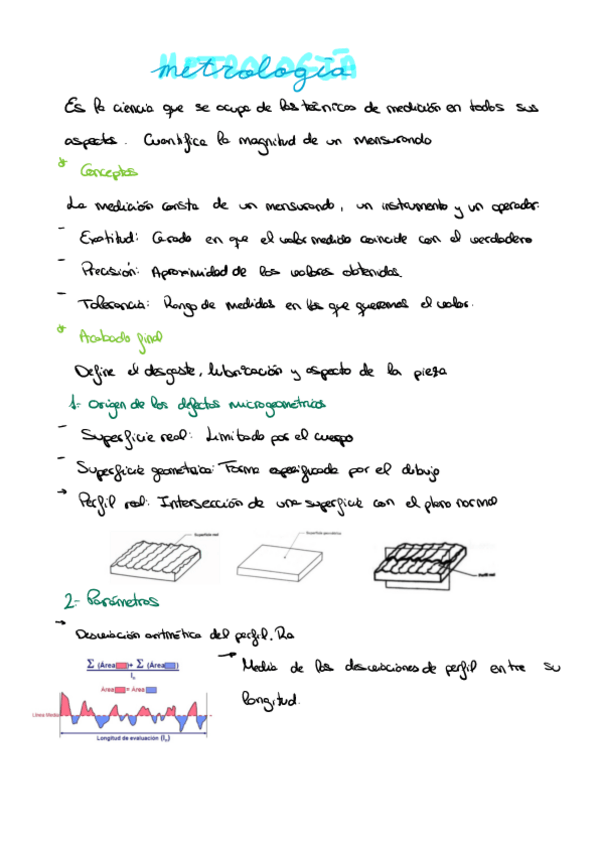 METROLOGÍA
metrología
Es la ciencia que se ocupa de las técnicas de medición en todos sus
aspectos. Cuantifica la magnitud de un mensurando
* Conceptos
La medición consta de un mensurando, un instrumento y un operador.
- Exatitud: Grado en que el valor medido coincide con el verdadero
- Precisión: Aproximidad de los valores obtenidos.
- Tolerancia: Rango de medidas en los que queremos el valor.
* Acabado final
Define el desgaste, lubricación y aspecto de la pieza
1- Origen de los defectos microgeométricos
- Superficie real: Limitado por el cuerpo
- Superficie geométrica: Forma especificada por el dibujo
→ Perfil real: Intersección de una superficie con el plano normal
Superficie real
Superficie geométrica
Perfil real
2- Parámetros
→ Desviación aritmética del perfil. Ra
Σ (Área) + Σ (Área)
lₙ
Área = Área
→ Media de las desviaciones de perfil entre su
longitud.
Línea Media
Longitud de evaluación (lₙ)